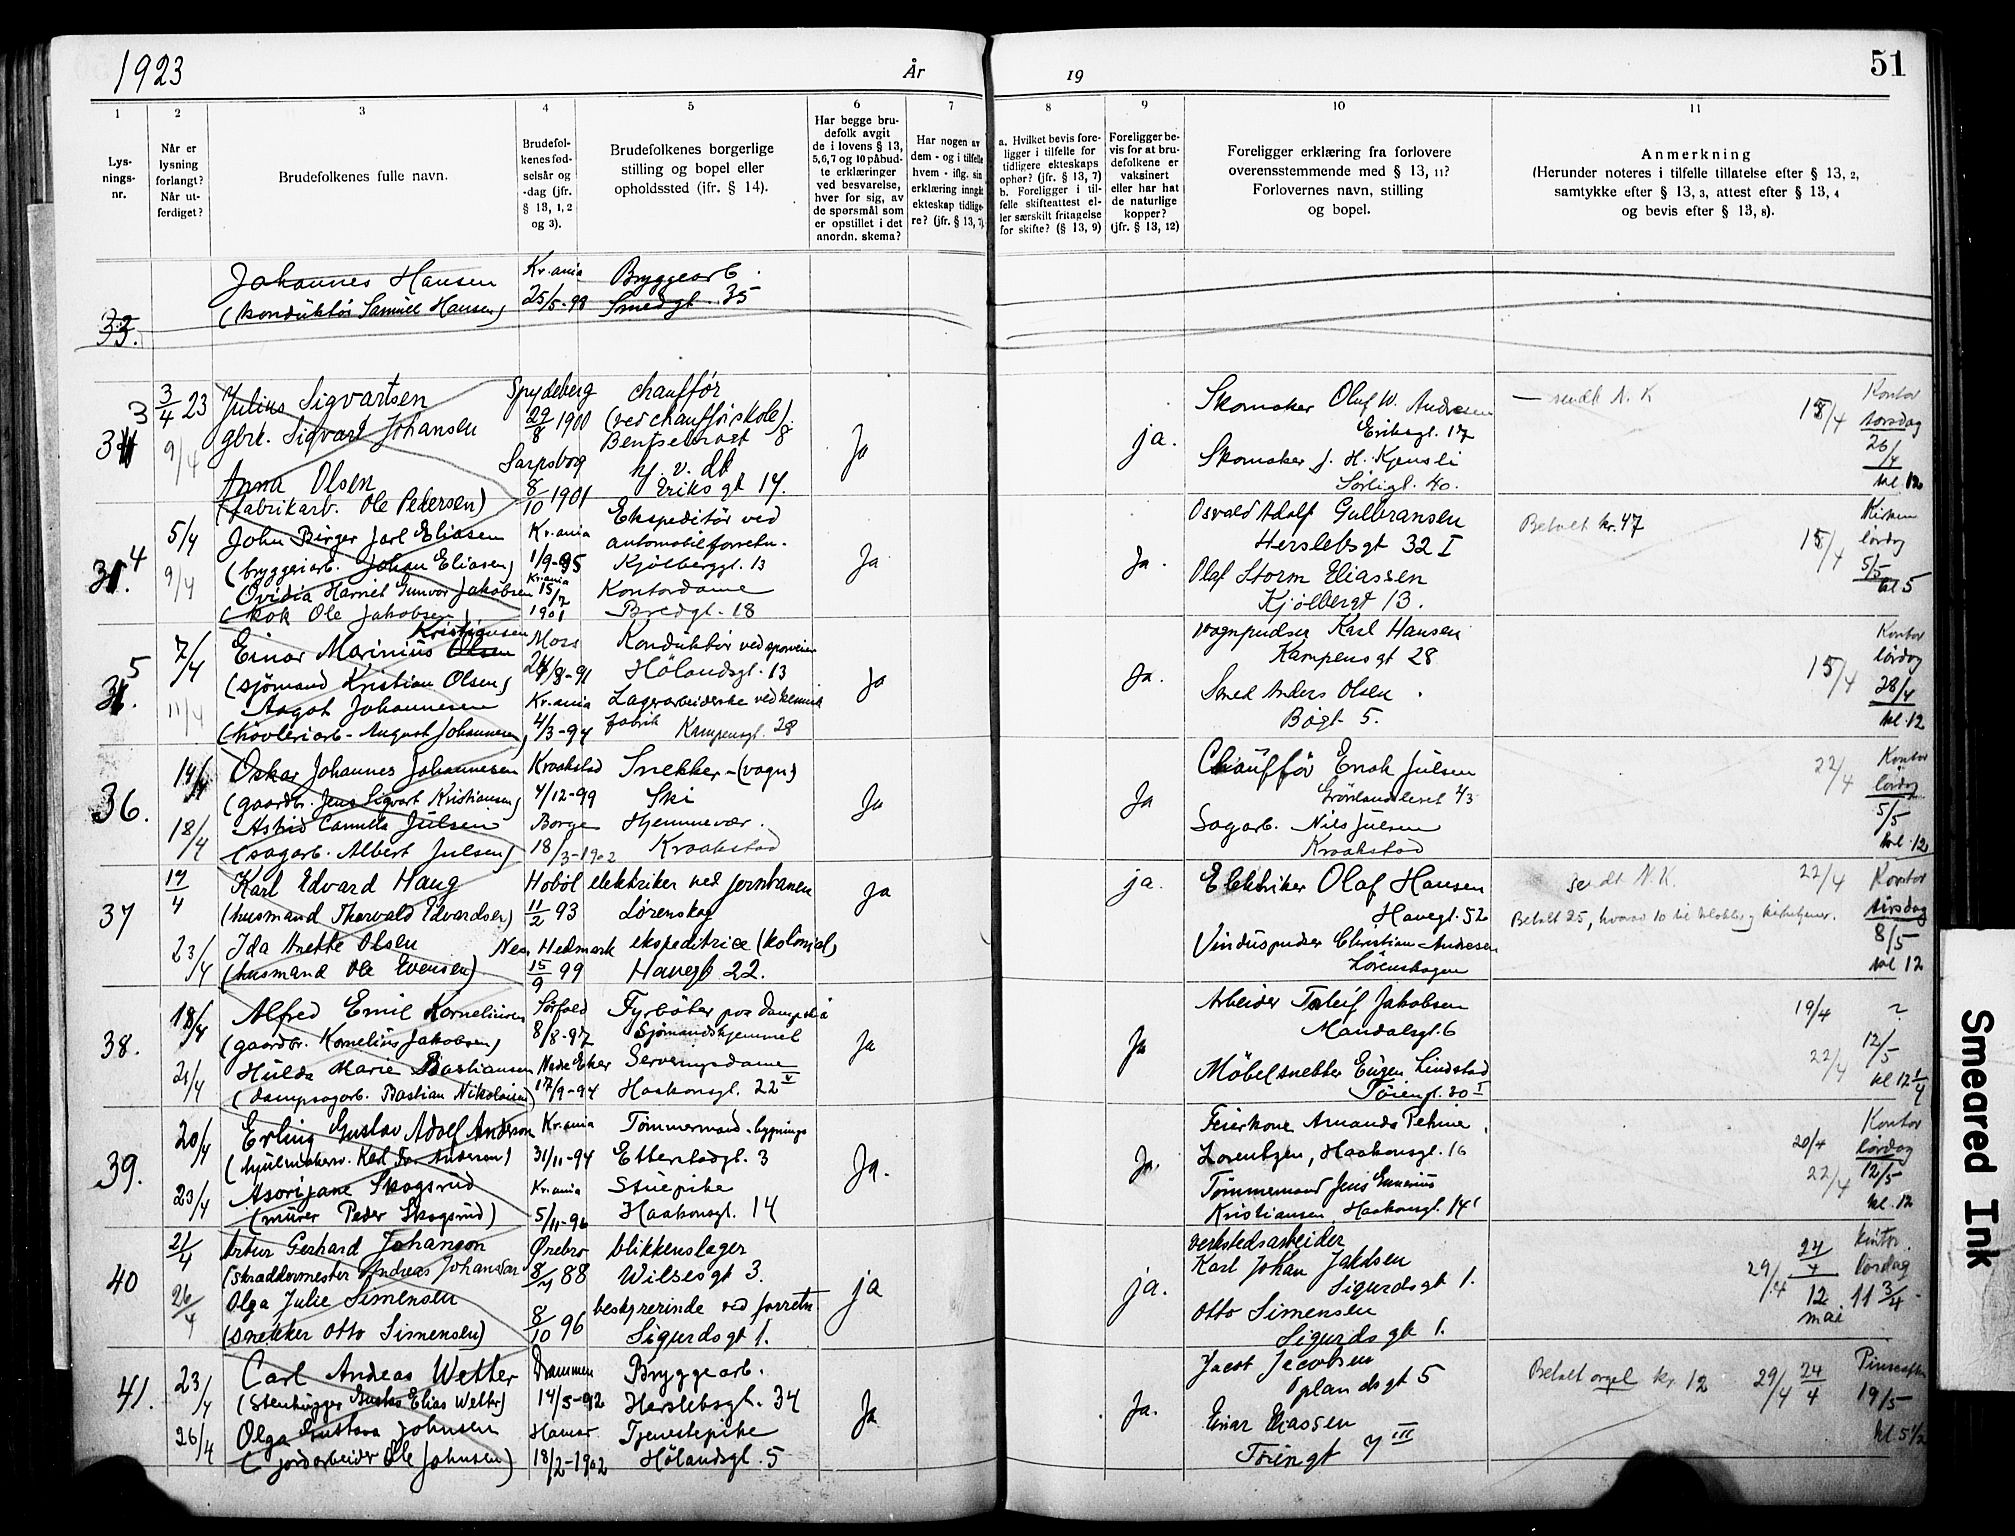 1923 År 19 51
1 2 3 4 5 6 7 8 9 10 11
Lys-
nings-
nr.
Når er
lysning
forlangt?
Når ut-
ferdiget?
Brudefolkenes fulle navn.
Brudefol-
kenes fød-
selsår og
-dag (jfr.
§ 13, 1, 2
og 3).
Brudefolkenes borgerlige
stilling og bopel eller
opholdssted (jfr. § 14).
Har begge bru-
defolk avgit
de i lovens § 13,
5,6,7 og 10 påbud-
te erklæringer
ved besvarelse,
hver for sig, av
de spørsmål som
er opstillet i det
anordn. skema?
Har nogen av
dem - og i tilfelle
hvem - iflg. sin
erklæring inngåt
ekteskap tidlige-
re? (jfr. § 13, 7).
a. Hvilket bevis fore-
ligger i tilfelle for
tidligere ekteskaps
ophør? (jfr. § 13, 7)
b. Foreligger i til-
felle skifteattest el-
ler særskilt fritagelse
for skifte? (§ 13, 9)
Foreligger be-
vis for at bru-
defolkene er
vaksinert
eller har hat
de naturlige
kopper?
(jfr. § 13, 12)
Foreligger erklæring fra forlovere
overensstemmende med § 13, 11?
Forlovernes navn, stilling
og bopel.
Anmerkning
(Herunder noteres i tilfelle tillatelse efter § 13, 2,
samtykke efter § 13, 3, attest efter § 13, 4
og bevis efter § 13, 8).
33.
Johannes Hansen
(konduktør Samuel Hansen)
Kr.ania
25/5-99
Bryggearb.
Smedgt. 35
3
34
3/4 23
9/4
Julius Sigvartsen
gbrk. Sigvart Johansen
Anna Olsen
(fabrikarb. Ole Pedersen)
Spydeberg
29/8 1900
Sarpsborg
8/10 1901
chauffør
(ved chaufførskole).
Bentsebrogt 8
hj. v. db
Eriksgt 17.
Ja
ja.
Skomaker Oluf W. Andresen
Eriksgt. 17
Skomaker J. H. Kjensli
Sørligt. 40.
— sendt N. K
15/4
Kontor
torsdag
26/4
kl. 12
4
5/4
9/4
John Birger Jarl Eliasen
(bryggeriarb. Johan Eliasen)
Ovidia Harriet Gunvor Jakobsen
(kok Ole Jakobsen)
Kr.ania
1/9-95
Kr.ania
15/7
1901
Ekspeditør ved
automobilforretn.
Kjølberggt. 13
Kontordame
Bredgt. 18
Ja
Ja.
Osvald Adolf Gulbransen
Herslebsgt 32 I
Olaf Storm Eliassen
Kjølbergt 13.
Betalt kr. 47
15/4
Kirken
lørdag
5/5
kl 5
5
7/4
11/4
Kristiansen
Einar Marinius Olsen
(sjømand Kristian Olsen)
Aagot Johannesen
(høvleriarb. August Johannesen)
Moss
24/8-91
Kr.ania
4/3-94
Konduktør ved sporveien
Hölandsgt. 13
Lagerarbeiderske ved kemisk
fabrik Kampensgt. 28
Ja
Ja.
Vognpudser Karl Hansen
Kampensgt 28
Smed Anders Olsen.
Bøgt 5.
15/4
Kontor
lørdag
28/4
kl. 12
36.
14/4
18/4
Oskar Johannes Johannesen
(gaardbr. Jens Sigvart Kristiansen)
Astrid Camilla Julsen
(sagarb. Albert Julsen)
Kraakstad
4/12-99
Borge
18/3-1902
Snekker - (vogn)
Ski
Hjemmevær.
Kraakstad
Ja
Ja
Chauffør Enok Julsen
Grønlandsleret 43
Sagarb. Nils Julsen
Kraakstad
22/4
Kontor
lørdag
5/5
kl. 12
37
17/4
23/4
Karl Edvard Haug
(husmand Thorvald Edvardsen)
Ida Anette Olsen
(husmand Ole Evensen)
Hobøl
11/2 93
Nes, Hedmark
15/9 99
elektriker ved jernbanen
Lørenskog
ekspeditrice (kolonial)
Havegt 22.
Ja
ja.
Elektriker Olaf Hansen
Havegt. 52
Vinduspudser Christian Andresen
Lørenskogen
sendt N.K.
Betalt 25, hvorav 10 til klokker og kirketjener.
22/4
Kontor
tirsdag
8/5
kl 12
38.
18/4
21/4
Alfred Emil Korneliussen
(gaardbr. Kornelius Jakobsen)
Hulda Marie Bastiansen
(dampsagarb. Bastian Nikolaisen)
Sørfold
8/8-97
Nedre Eker
17/9-94
Fyrbøter paa dampskib
Sjømandshjemmet
Serveringsdame
Haakonsgt. 22 V
Ja
Ja
Arbeider Torleif Jakobsen
Mandalsgt. 6
Møbelsnekker Eugen Lindstad
Tøiengt. 30 I
19/4 ?
22/4
12/5
kl 12 1/4
39.
20/4
23/4
Erling Gustav Adolf Anderson
(hjulmakersv. Karl Anderson)
Asorijane Skogsrud
(murer Peder Skogsrud)
Kr.ania
31/11-94
Kr.ania
5/11-96
Tømmermand - bygnings
Etterstadgt. 3
Stuepike
Haakonsgt. 14
Ja.
Ja.
Feierkone Amanda Petrine
Lorentzen, Haakonsgt. 16
Tømmermand Jens Ennerius
Kristiansen Haakonsgt. 14
20/4
22/4
Kontor
lørdag
12/5
kl. 12
40
21/4
26/4
Artur Gerhard Johanson
(skraddermester Andreas Johanson
Olga Julie Simensen
(snekker Otto Simensen)
Ørebro
8/4 88
8/10 96
blikkenslager
Wilsesgt 3.
bestyrerinde ved forretn
Sigurdsgt 1.
ja
ja.
Verkstedsarbeider
Karl Johan Jaldsen
Sigurdsgt 1.
Otto Simensen
Sigurdsgt 1.
29/4
24/4
12
mai
Kontor.
lørdag
11 3/4
41.
23/4
26/4
Carl Andreas Wetter
(Stenhugger Elias Wetter)
Olga Gustava Johnsen
(jordarbeider Ole Johnsen)
Drammen
14/5-92
Hamar
18/2-1902
Bryggearb.
Herslebsgt. 34
Tjenestepike
Hölandsgt. 5
Ja
Ja.
Jacob Jacobsen
Oplandsgt 5
Einar Eliassen
Tøiengt 7 III
Betalt orgel kr. 12
29/4
24/4
Pinseaften
19/5
kl 5 1/2
Smeared Ink